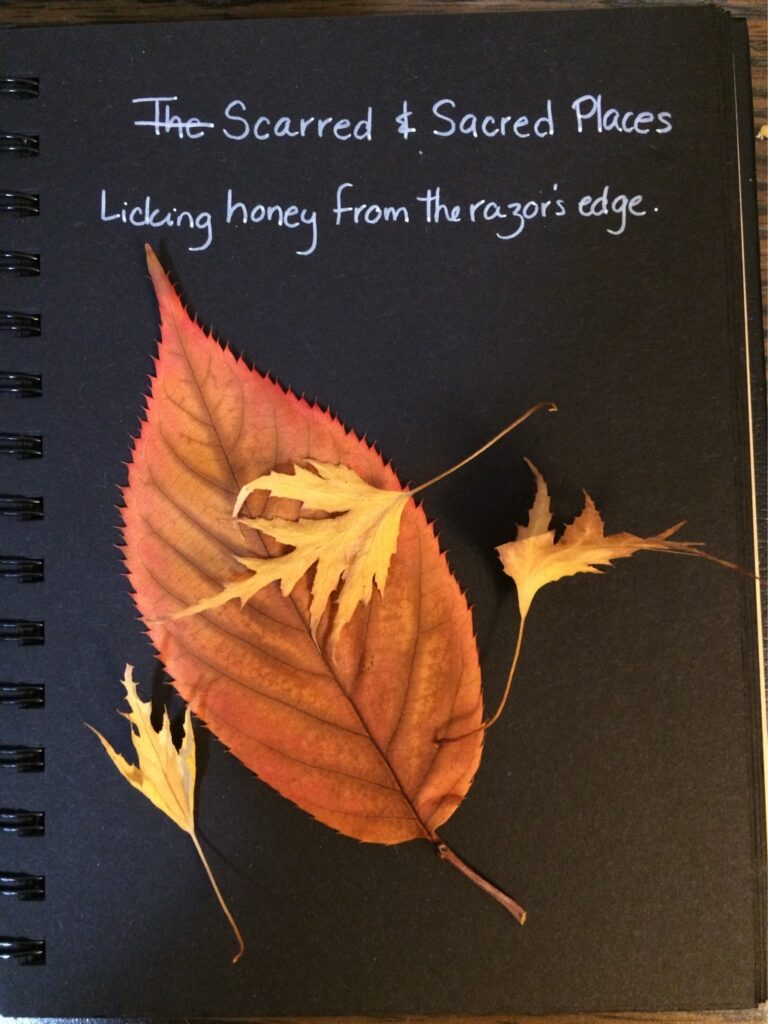 The Scarred & Sacred Places
Licking honey from the razor's edge.